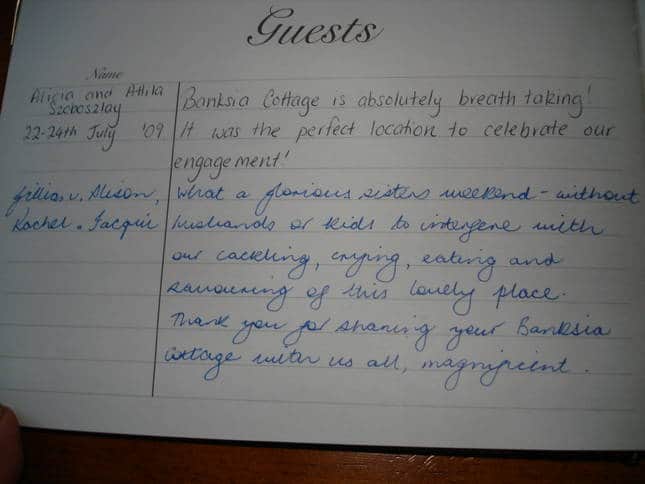 Guests
Name
Alicia and Attila
Szoboszlay
22-24th July '09
Banksia Cottage is absolutely breath taking!
It was the perfect location to celebrate our
engagement!
Gillian, Alison,
Rachel, Jacqui
What a glorious sisters weekend - without
husbands or kids to intergene with
our cackling, crying, eating and
savouring of this lovely place.
Thank you for sharing your Banksia
Cottage with us all, magnificent.